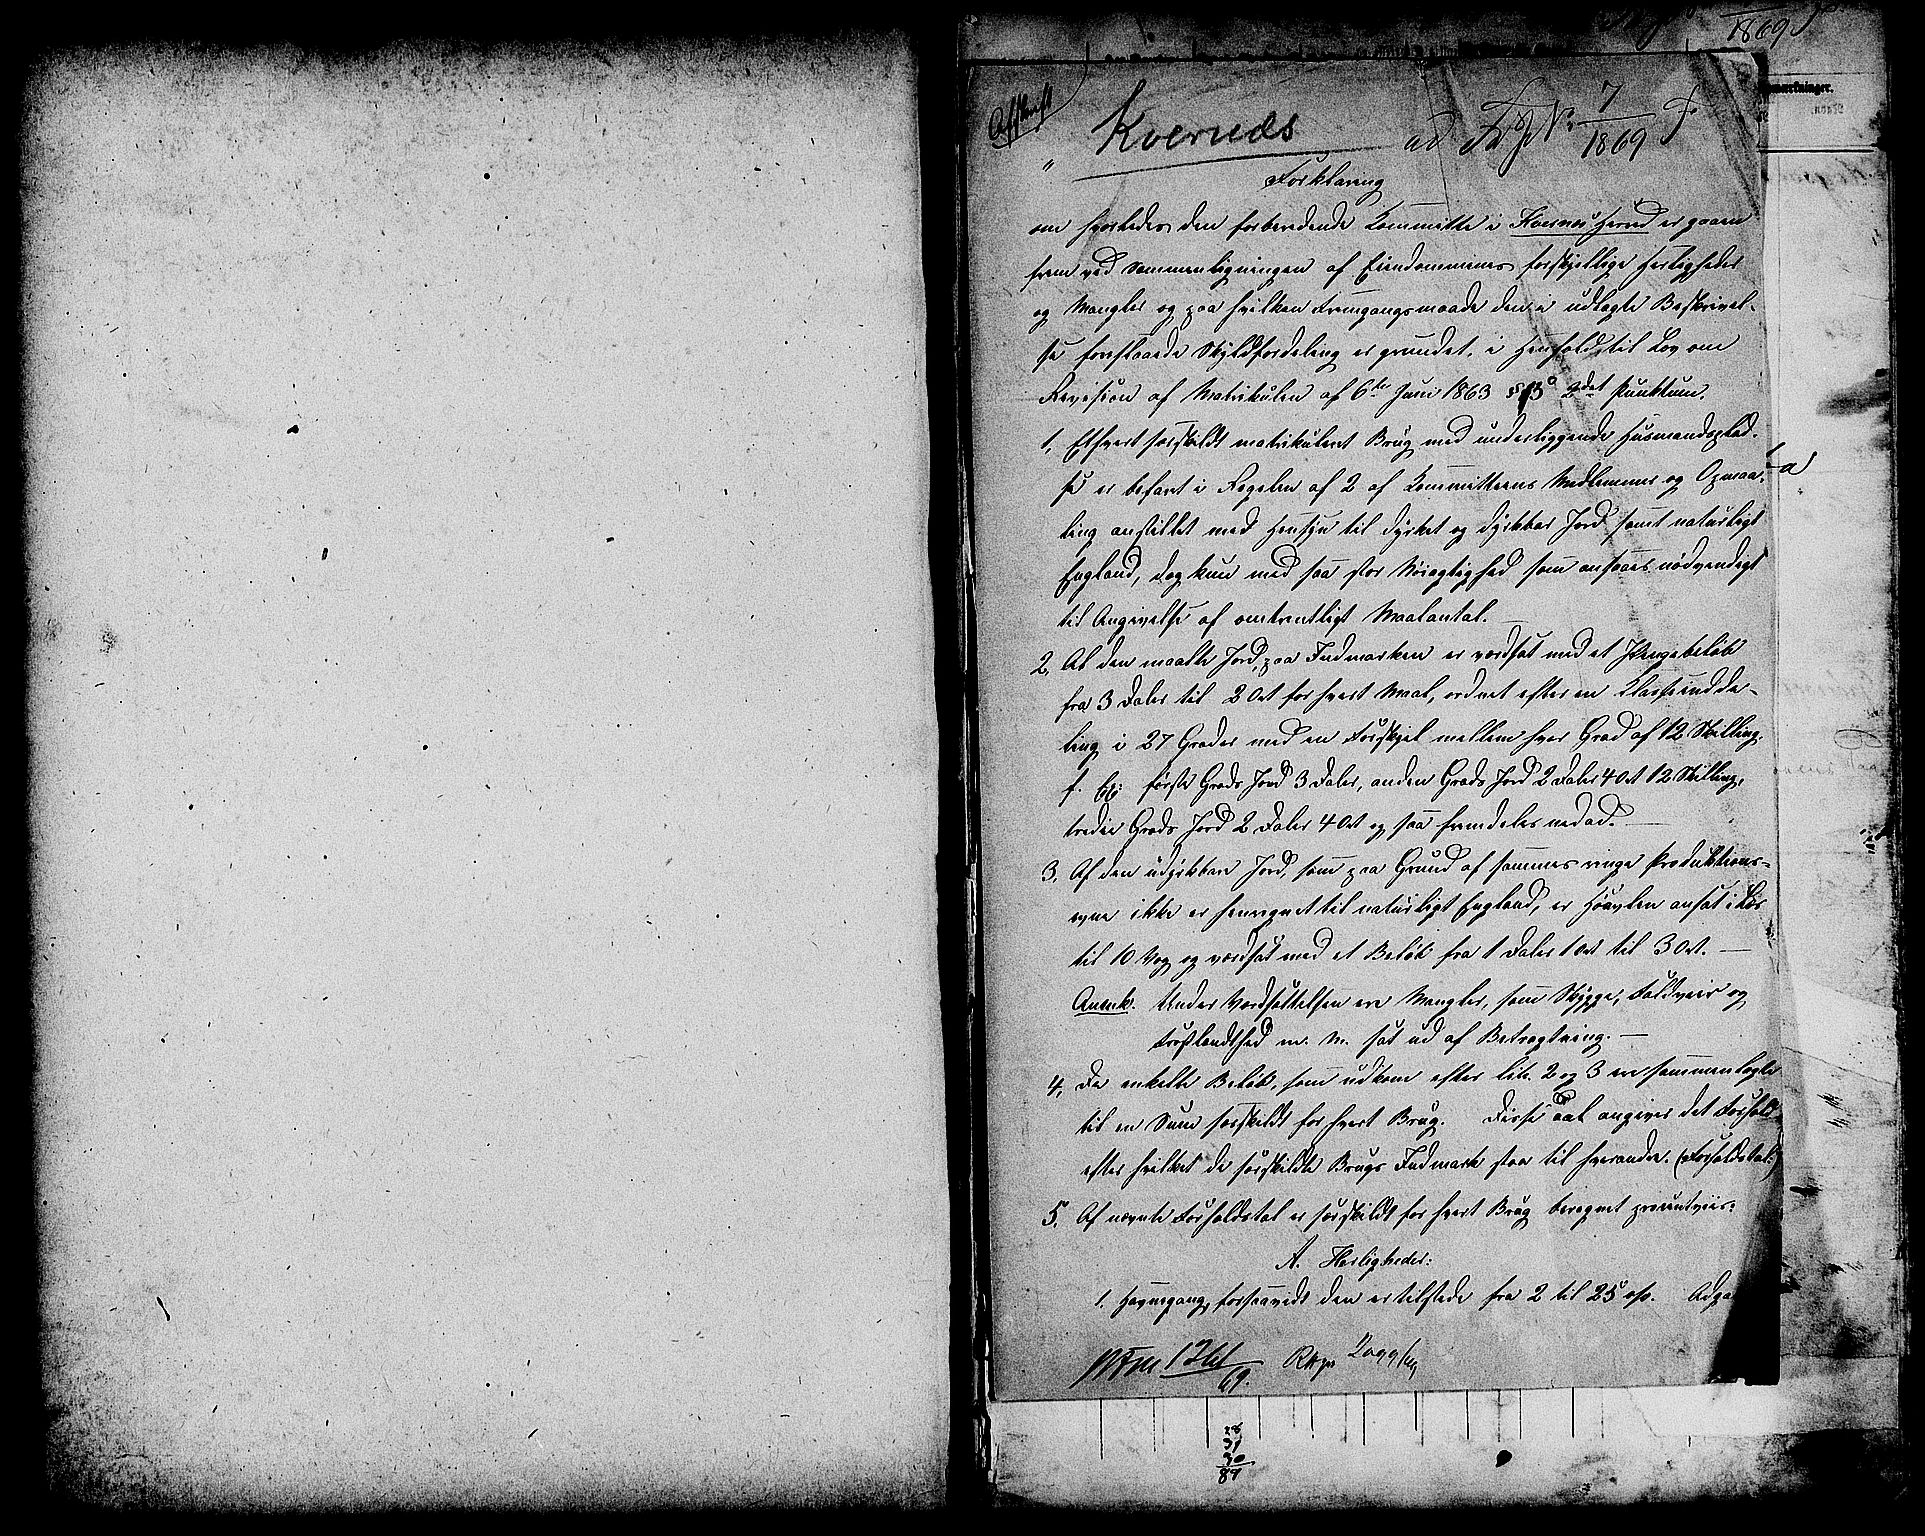 1869
Anmærkninger.
Afskrift
Kvernæs ad 7/1869
Forklaring
om hvorledes den forberedende Kommitte i Kvernæs Herred er gaaen
frem ved Sammenligningen af Eiendommenes forskjellige Herligheder
og Mangler og paa hvilken Fremgangsmaade den i udlagte Beskrivel-
se foreslaaede Skyldfordeling er grundet, i Henhold til Lov om
Revision af Matrikulen af 6te Juni 1863 § 13 2det Punktum.
1, Ethvert særskildt matrikuleret Brug med underliggende Husmandsplad-
se er befaret i Regelen af 2 af Kommitteens Medlemmer og Opmaa-
ling anstillet med Hensyn til dyrket og dyrkbar Jord samt naturligt
England, dog kun med saa stor Nøiagtighed som ansaaes nødvendigt
til Angivelse af omtrentligt Maalantal.
2, Al den maalte Jord, paa Indmarken er værdsat med et Pengebeløb
fra 3 Daler til 2 Ort for hvert Maal, ordnet efter en Klasseindde-
ling i 27 Grader med en Forskjel mellem hver Grad af 12 Skilling,
f. Ex: første Grads Jord 3 Daler, anden Grads Jord 2 Daler 4 Ort 12 Skilling,
tredie Grads Jord 2 Daler 4 Ort og saa fremdeles nedad.
3, Af den udyrkbare Jord, som paa Grund af sammes ringe Produktions-
evne ikke er henregnet til naturligt England, er Høavlen ansat i Læs
til 10 Vog og værdsat med et Beløb fra 1 Daler 1 Ort til 3 Ort.
Anmk. Under Værdsættelsen ere Mangler, som Skygge, Faldveir og
Frostlændthed m. M. sat ud af Betragtning.
4, De enkelte Beløb, som udkom efter litr. 2 og 3 ere sammenlagte
til en Sum særskildt for hvert Brug. Disse Tal angiver det Forhold
efter hvilket de særskildte Brugs Indmark staa til hverandre. (Forholdstal.)
5, Af nævnte Forholdstal er særskildt for hvert Brug beregnet procentviis:
A. Herligheder:
1. Havnegang, forsaavidt den er tilstede fra 2 til 25 o/o. Adga
69.
28
31
30
89